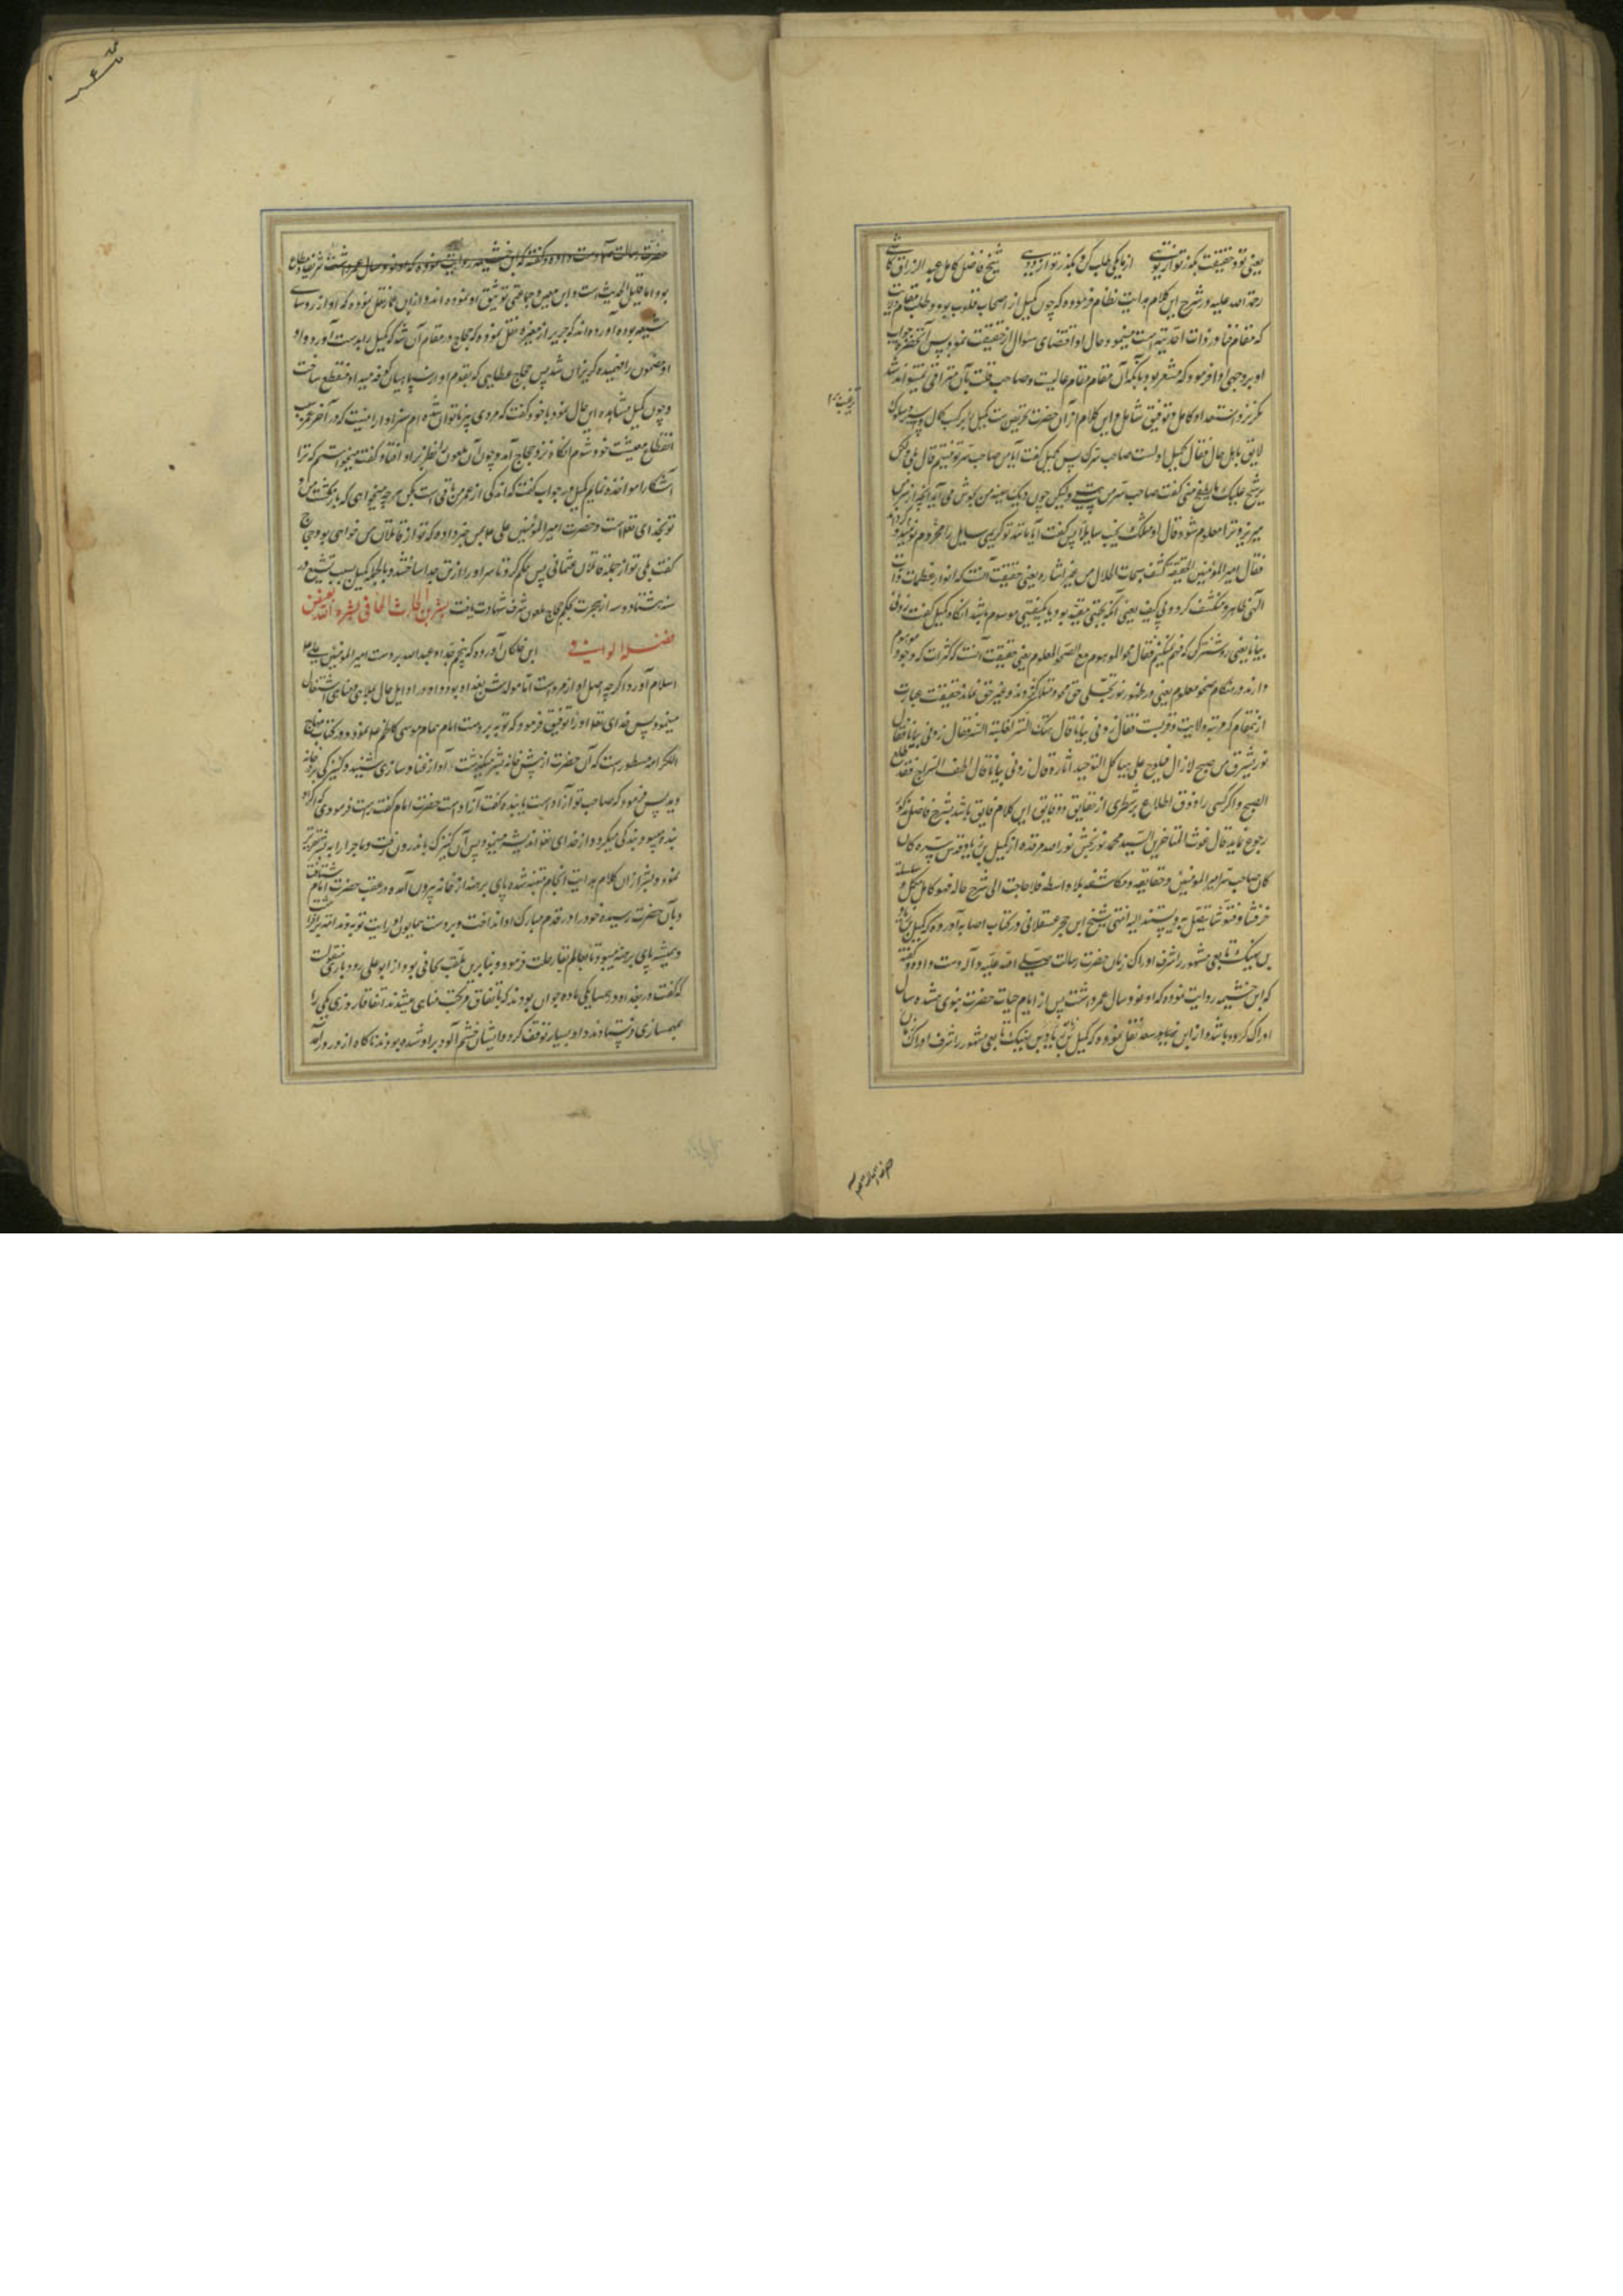 یعنی تو در حقیقت بگذر تو از تویی از مایکی طلب کن و بگذر تو از دویی شیخ فاضل کامل عبد الرزاق کاشی
رحمة الله علیه در شرح این کلام هدایت نظام فرموده که چون کمیل از اصحاب قلوب بود و طلب مقام ولایت
که مقام فنا در ذات احدیة است مینمود و حال او اقتضای سؤال از حقیقت نمود پس آنحضرت جواب
او بر وجهی ادا فرمود که مشعر بود بآنکه آن مقام مقام عالیست و صاحب قلب بآن مترقی نمیتواند شد
مگر نزد استعداد کامل و توفیق شامل و این کلام از آن حضرت تحریص است کمیل را بر کسب کمال
لایق حال فقال کمیل اولست صاحب سرک پس کمیل گفت آیا من صاحب سر تو نیستم قال بلی ولکن
یرشح علیک ما یطفح منی گفت صاحب سر من هستی ولیکن چون دیک سینه من بجوش می آید آنچه از سر من
میریزد ترا معلوم شود قال او مثلک یخیب سایلا پس گفت آیا مانند تو کریمی سایل را محروم
فقال امیر المؤمنین الحقیقة کشف سبحات الجلال من غیر اشاره یعنی حقیقت آنست که انوار عظمات ذات
الهی ظاهر و منکشف گردد بی کیف یعنی آنکه بجهتی مقید بود یا بکیفیتی موسوم باشد آنگاه کمیل گفت زدنی
بیانا یعنی روشنترک که فهم نمیکنم فقال محو الموهوم مع الصحو المعلوم یعنی حقیقت آنست که کثرات که وجود موهوم
دارند در هنگام صحو معلوم یعنی در ظهور نور تجلی حق محو و متلاشی گردند و غیر حق نماند حقیقت عبارت
از مقام که مرتبه ولایت و قربست فقال زدنی بیانا قال هتک الستر لغلبة السر فقال زدنی بیانا فقال
نور یشرق من صبح لازال فیلوح علی هیاکل التوحید اثاره قال زدنی بیانا قال اطف السراج فقد طلع
الصبح و اگر کسی را ذوق اطلاع بر شطری از حقایق و دقایق این کلام فایق باشد بشرح فاضل مذکور
رجوع نماید قال غوث المتاخرین السید محمد نوربخش نور الله مرقده از کمیل بن زیاد قدس سره کان
کان صاحب سر امیر المؤمنین و حقایقه و مکاشفه بلا واسطه فلا حاجت الی شرح حاله فهو کامل مکمل و سلسلة
خرقتنا و فتوتنا یتصل به و یستند الیه انتهی شیخ ابن حجر عسقلانی در کتاب اصابه آورده که کمیل بن زیاد
بن نهیک تابعی مشهور را شرف ادراک زمان حضرت رسالت صلی الله علیه و آله دست داده و گفته
که ابن خثیمه روایت نموده که او نود سال عمر داشت پس از ایام حیات حضرت نبوی هشده سال
ادراک کرده باشد و از ابن سعد نقل نموده که کمیل بن زیاد بن نهیک تابعی مشهور را شرف ادراک زمان
حضرت رسالت دست داده و گفته که ابن خثیمه روایت نموده که او نود سال عمر داشت شریف و مطاع
بود اما قلیل الحدیث است و ابن معین و جماعتی توثیق او نموده اند و از ابن عمار نقل نموده که او از روسای
شیعه بوده آورده اند که جریر از مغیره نقل نموده که حجاج در مقام آن شد که کمیل را بدست آورد و او
مضمون را فهمیده گریزان شد پس حجاج عطایی که بقوم او در میان کوفه میداد منقطع ساخت
و چون کمیل مشاهده این حال نمود با خود گفت که مردی پیر ناتوان شده ام سزاوار نیست که در آخر عمر سبب
انقطاع معیشت خود شوم آنگاه نزد حجاج آمد و چون آن ملعون را نظر بر او افتاد گفت میخواستم که ترا
آشکارا مواخذه نمایم کمیل در جواب گفت که اندکی از عمر من باقی است بکن هر چه میخواهی که بازگشت من و
تو بخدای تعالی است و حضرت امیر المؤمنین علی بمن خبر داده که تو از قاتلان من خواهی بود حجاج
گفت بلی تو از جمله قاتلان عثمانی پس حکم کرد تا سر او را از تن جدا ساختند و بالجمله کمیل بسبب تشیع در
سنه هشتاد و سه از هجرت بحکم حجاج ملعون شرف شهادت یافت بشر بن الحارث الحافی بشره الله بعضین
فضله الوافی ابن خلکان آورده که پنجم جد او عبد الله بر دست امیر المؤمنین علی
اسلام آورد و اگر چه اصل او از مرو است اما مولدش بغداد بود و او در اوایل حال بملاهی و مناهی اشتغال
مینمود پس خدای تعالی او را توفیق فرمود که توبه بر دست امام همام موسی کاظم نمود و در کتاب منهاج
الکرامه مسطور است که آن حضرت از پیش خانه بشر میگذشت آواز غنا و سازی شنید و کنیزکی بر در خانه
دید پس فرمود که صاحب تو آزاد است یا بنده گفت آزاد است حضرت امام گفت راست فرمودی که اگر او
بنده میبود بندگی میکرد و از خدای تعالی اندیشه مینمود پس آن کنیزک باندرون رفت و ماجرا را به بشر تقریر
نمود و بشر از آن کلام هدایت انجام متنبه شده پای برهنه از خانه بیرون آمده در عقب حضرت امام شتافت
و بآن حضرت رسیده خود را در قدم مبارک او انداخت و بر دست همایون او رایت توبه و ندامت برافراشت
و همیشه پای برهنه میبود تا بعالم بقا رحلت فرمود و بنابرین ملقب بحافی بود از ابو علی رودباری منقولست
که گفت در بغداد در همسایگی ما ده جوان بودند که باتفاق مرتکب مناهی میشدند اتفاقا روزی یکی را
بمهمسازی فرستادند و او بسیار توقف کرد و ایشان خشم آلود بر او شده بودند ناگاه از در درآمد